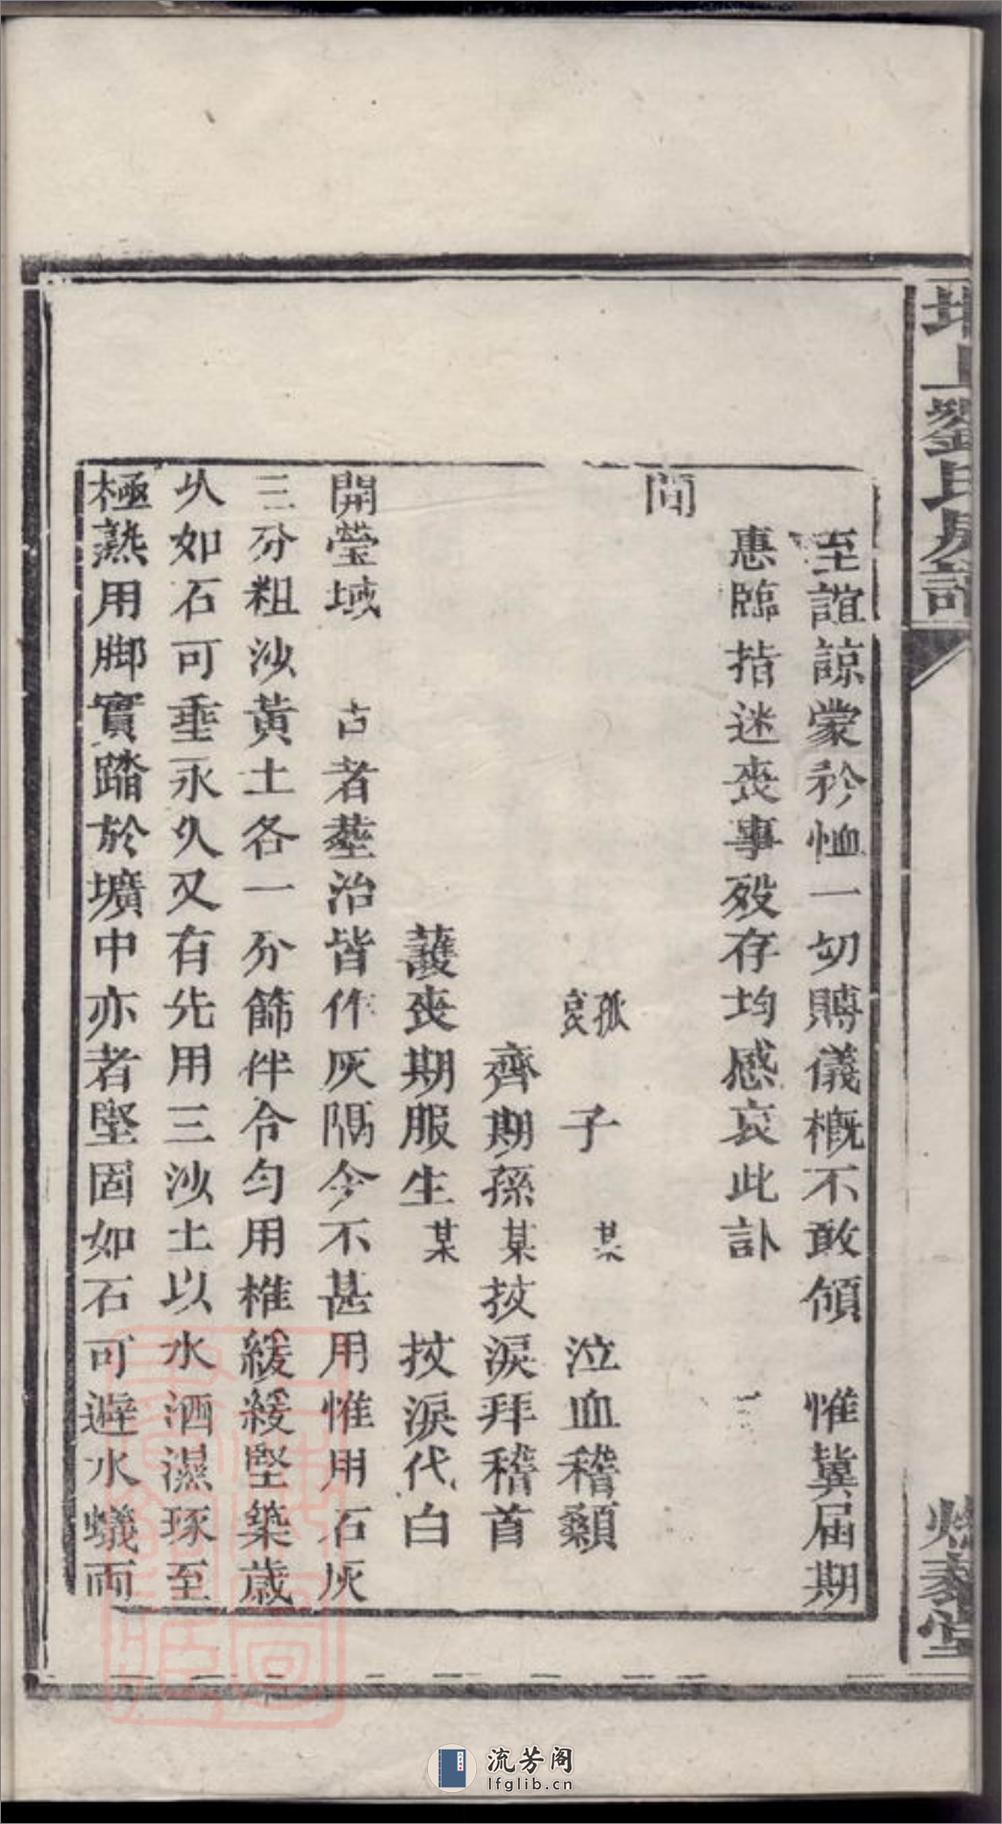 至誼諒蒙矜恤一切賻儀概不敢領　惟冀屆期
惠臨指迷喪事殁存均感哀此訃
聞
孤哀子　某　泣血稽顙
齊期孫某抆淚拜稽首
護喪期服生某　抆淚代白
開瑩域　古者塟治皆作灰隔今不甚用惟用石灰
三分粗沙黃土各一分篩伴令勻用椎緩緩堅築歲
乆如石可垂永久又有先用三沙土以水洒濕琢至
極熟用脚實踏於壙中亦者堅固如石可避水蟻而
劉氏房譜
泰堂
流芳阁
lfglib.cn